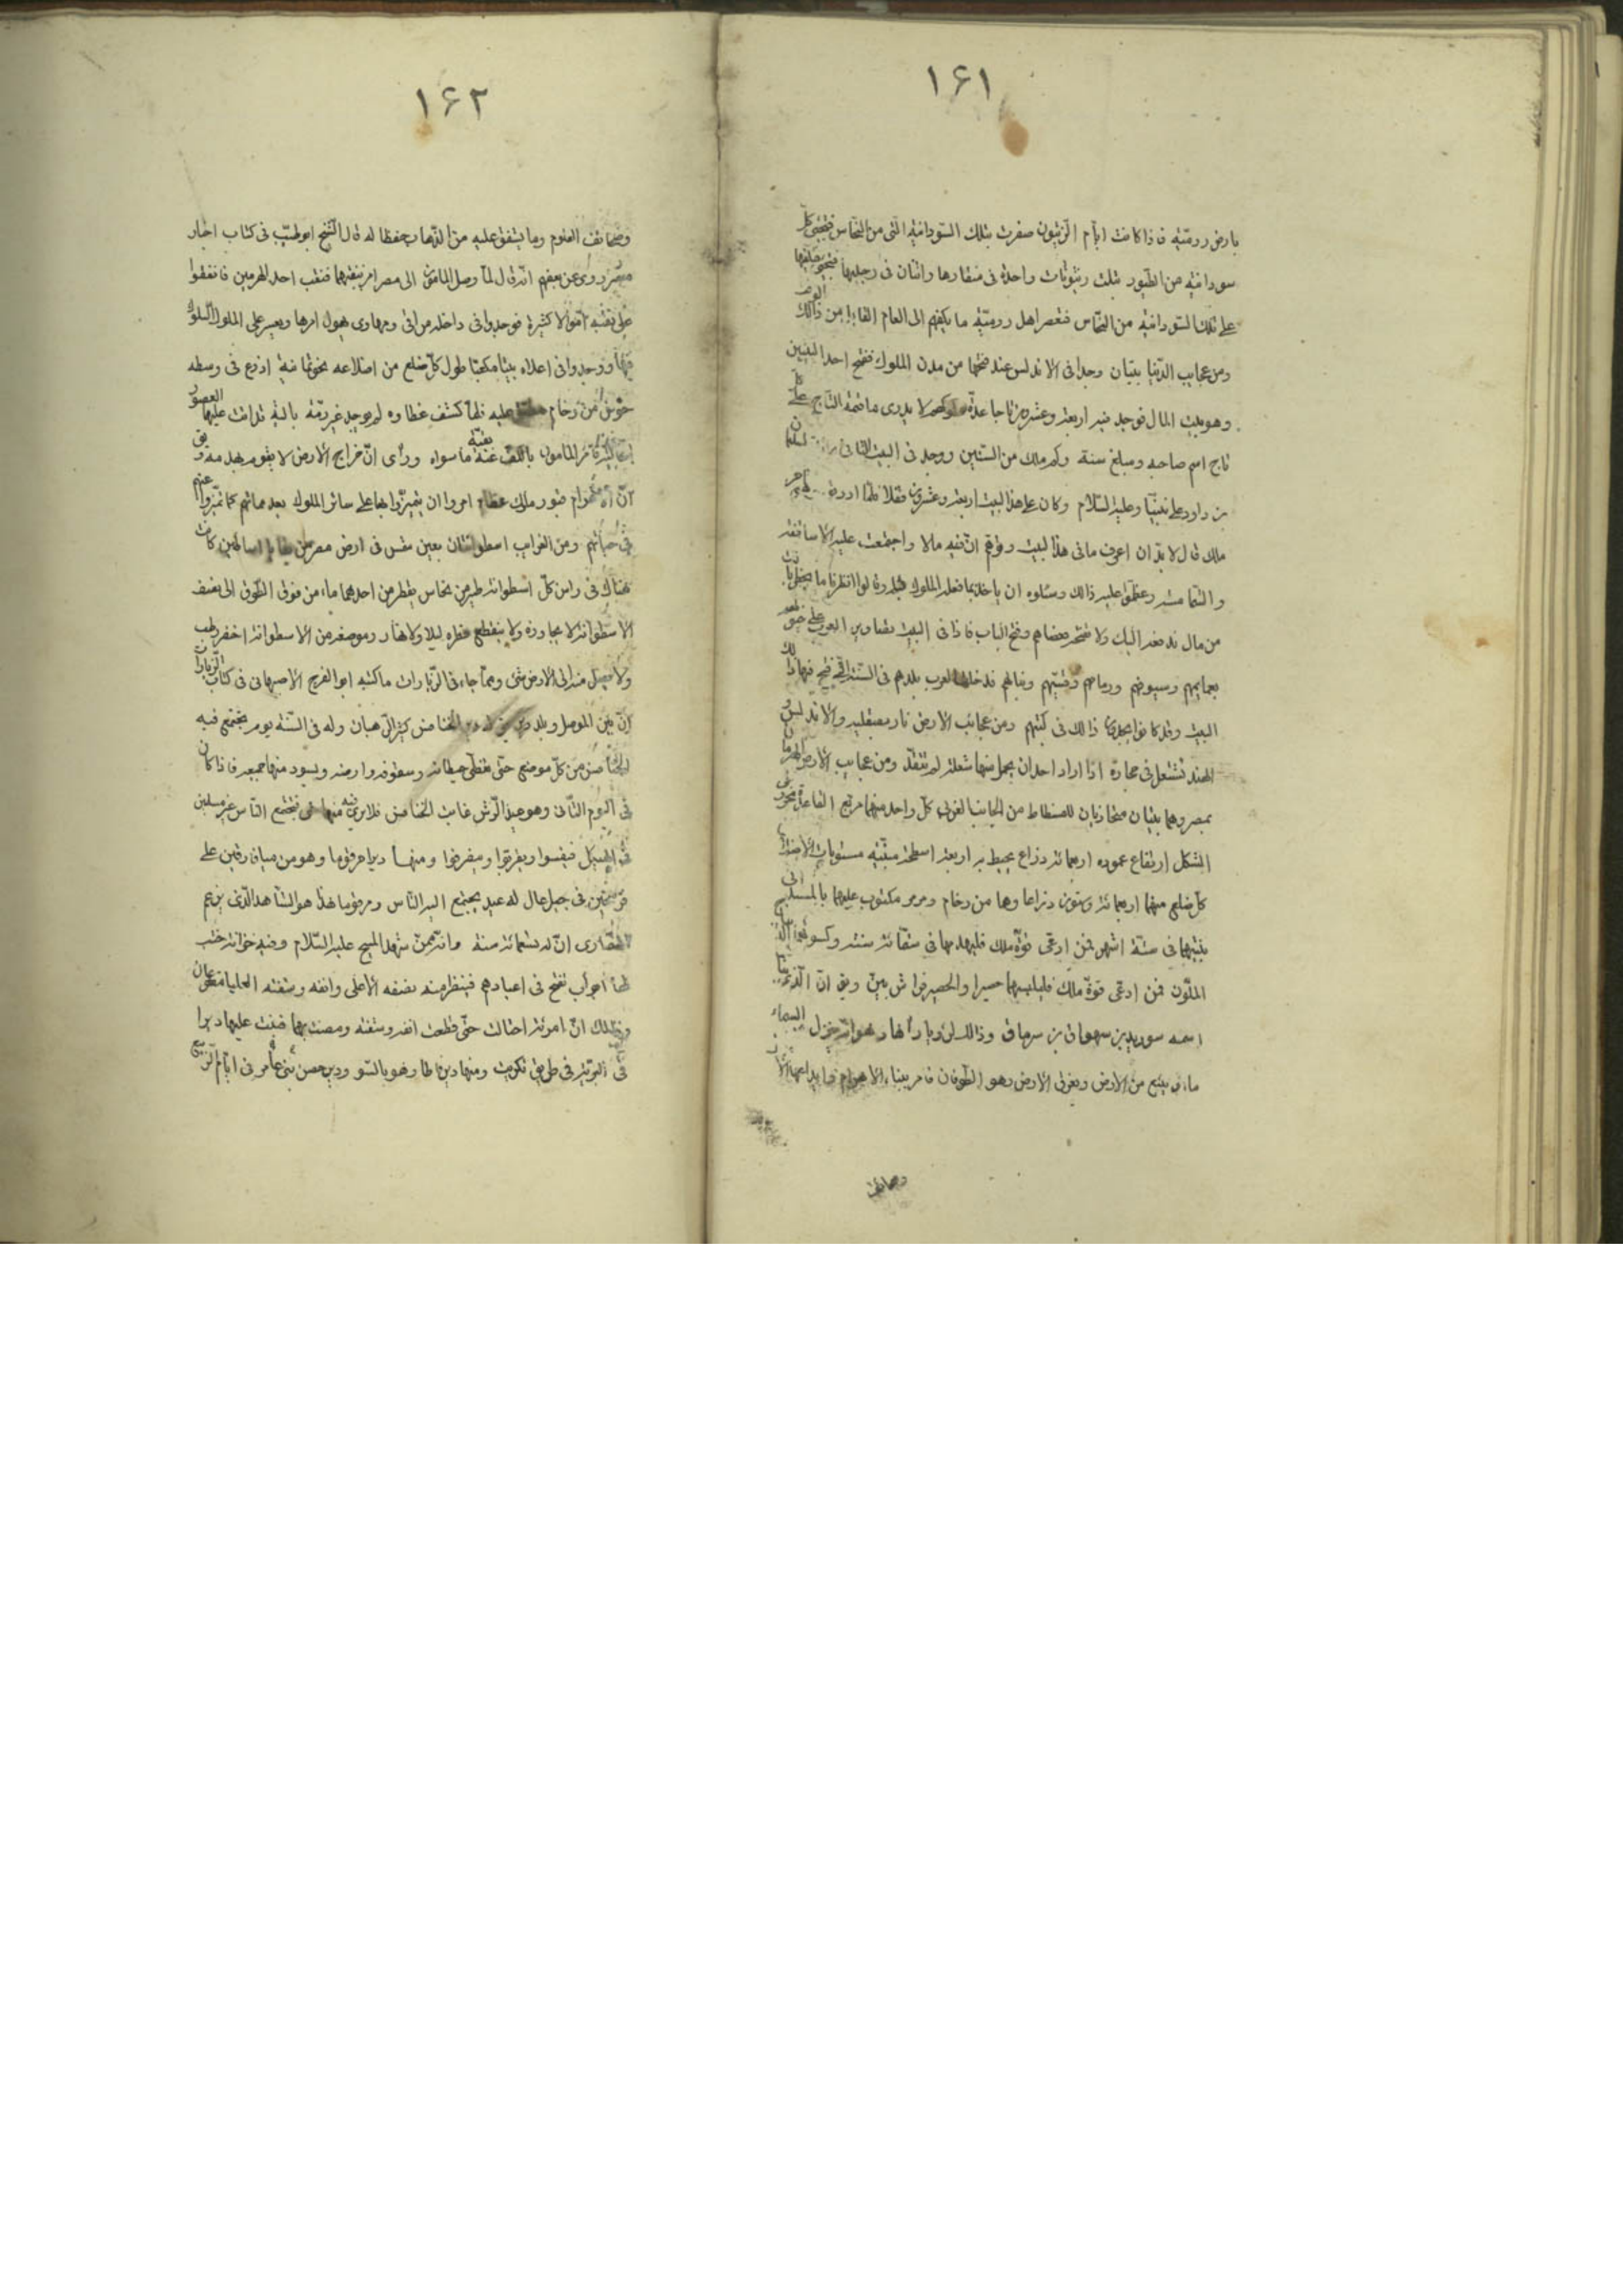 ١۶١
بارض رومیّة فاذا كانت ایّام الزیتون صفرت بتلك السّودانیة الّتی من النّحاس فتجئ كلّ
سودانیة من الطّیور بثلث زیتونات واحدة فی منقارها واثنان فی رجلیها فتجئ فتلقیها
علی تلك السّودانیة من النّحاس فتعصر اهل رومیّة ما یكفیهم الی العام القابل من ذالك
ومن عجایب الدّنیا بیتان وجدا فی الاندلس عند فتحها من مدن الملوك ففتح احد البیتین
وهو بیت المال فوجد فیه اربعة وعشرین تاجا عدّة ملوكهم لا یدری ما قیمة التّاج علی كلّ
تاج اسم صاحبه ومبلغ سنه وكم ملك من السّنین ووجد فی البیت الثّانی مائدة سلیمان
بن داود علی نبیّنا وعلیه السّلام وكان علی هذا البیت اربعة وعشرون قفلا
ملك قال لا بدّ ان اعرف ما فی هذا البیت وتوهّم انّ فیه مالا واجتمعت علیه الاساقفة
والشّمامسة وعظّموا علیه ذالك وسئلوه ان یاخذ بما فعله الملوك قبله وقالوا انظر ما یخطر ببالك
من مال ندفعه الیك ولا تفتحه فعصاهم وفتح الباب فاذا فی البیت تصاویر العرب علی خیولهم
بعمایمهم وسیوفهم ورماحهم وقسیّهم ونبالهم فدخلت العرب بلدهم فی السّنة الّتی فتح فیها ذالك
البیت وقد كانوا یجدون ذالك فی كتبهم ومن عجائب الارض نار بصقلیه والاندلس و
الهند تشتعل فی حجارة اذا اراد احد ان یحمل منها شعلة لم تتّقد ومن عجایب الارض الهرمان
بمصر وهما بیتان متحاذیان للفسطاط من الجانب الغربی كلّ واحد منهما مربّع القاعدة مخروط
الشكل ارتفاع عموده اربعمائة ذراع یحیط به اربعة اسطحة مثلّثة متساویات الاضلاع
كلّ ضلع منهما اربعمائة وستّون ذراعا وهما من رخام ومرمر مكتوب علیهما بالمسند انّی
بنیتهما فی ستّة اشهر فمن ادّعی قوّة ملك فلیهدمهما فی ستّمائة سنة وكسوتهما الدّیباج
الملوّن فمن ادّعی قوّة ملك فلیلبسهما حصیرا والحصیر فراش بیت ویق انّ الّذی بناهما
اسمه سورید بن سهوق بن سریاق وذالك لرؤیا رأها وهو انّه ینزل من السماء
ماء وینبع من الارض ویغرق الارض وهو الطّوفان فامر ببناء الاهرام
وصحائف
١۶٢
وصحائف العلوم وما یشفق علیه من الذّهاب حفظا له قال الشّیخ ابو طیّب فی كتاب اخبار
مصر وروی عن بعضهم انّه قال لمّا وصل المامون الی مصر امر بنقبهما فنقب احد الهرمین فانفقوا
علی نقبه اموالا كثیرة فوجدوا فی داخله مراقی ومهاوی یهول امرها ویعسر علی الملوك السّلوك
فیها ووجدوا فی اعلاه بیتا مكعّبا طول كلّ ضلع من اضلاعه نحو ثمانیة اذرع فی وسطه
حوض من رخام مطبق علیه فلمّا كشف غطاوه لم یوجد غیر رمّة بالیة قد اتت علیها العصور
فامر المامون بالكفّ عن نقبه ما سواه ورأی انّ خراج الارض لا یقوم بهدمه ویق
انّ الاهرام قبور ملوك عظام امروا ان یتمیّزوا بها علی سائر الملوك بعد مماتهم كما تمیّزوا عنهم
فی حیاتهم ومن الغرایب اسطوانتان بعین شمس فی ارض مصر من بقایا اساطین كانت
هناك فی راس كلّ اسطوانة طوق من نحاس یقطر من احدیهما ماء من فوق الطّوق الی نصف
الاسطوانة لا یجاوزه ولا ینقطع قطره لیلا ولا نهارا وموضعه من الاسطوانة اخضر رطب
ولا یصل منه الی الارض شئ وممّا جاء فی الزّیارات ما كتبه ابو الفرج الاصبهانی فی كتاب الزّیارات
انّ بین الموصل وبلد دیر یق له دیر الخنافس كثیر الرّهبان وله فی السّنة یوم یجتمع فیه
الخنافس من كلّ موضع حتّی تغطّی حیطانه وسقوفه وارضه ویسود منها جمیعه فاذا كان
فی الیوم الثّانی وهو عید الرّش غابت الخنافس فلا یری فیه منها شئ فیجتمع النّاس
فی الهیكل فیقسوا ویقربوا وینصرفوا ومنها دیر مرقوما وهو من میافارقین علی
فرسخین فی جبل عال له عید یجتمع الیه النّاس ومرقوما هذا هو الشّاهد الّذی یزعم
النّصاری انّ له ستّمائة سنة وانّه ممّن شهد المسیح علیه السّلام وفیه خزانة خشب
لها ابواب تفتح فی اعیادهم فینظر منه نصفه الاعلی وانفه وشفته العلیا مقطوعان
وذالك انّ امرئة احتالت حتّی قطعت انفه وشفته ومضت بهما فبنت علیها دیرا
فی البریّة فی طریق تكریت ومنها دیر باطا وهو بالسّو ودیر حصن بنی عامر فی ایّام الرّبیع